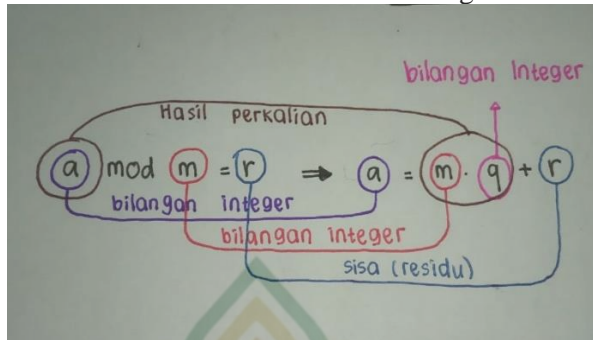 bilangan Integer
Hasil perkalian
a mod m = r ⇒ a = m · q + r
bilangan integer
bilangan integer
sisa (residu)